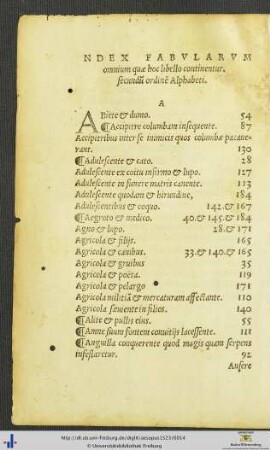 NDEX FABVLARVM
omnium quæ hoc libello continentur,
secundũ ordinē Alphabeti.
A
ABiete & dumo. 54
¶Accipitre columbam insequente. 87
Accipitribus inter se inimicis quos columbæ pacaue-
rant. 130
¶Adulescente & cato. 28
Adulescente ex coitu infirmo & lupo. 127
Adulescente in funere matris canente. 113
Adulescente quodam & hirundine, 184
Adulescentibus & coquo. 142. & 167
¶Aegroto & medico. 40. & 145. & 184
Agno & lupo. 28. & 171
Agricola & filijs. 165
Agricola & canibus. 33. & 140. & 165
Agricola & gruibus 35
Agricola & poëta. 119
Agricola & pelargo 171
Agricola militiã & mercaturam affectante. 110
Agricola seuiente in filios. 140
¶Alite & pullis eius. 55
¶Amne suum fontem conuitijs lacessente. 111
¶Anguilla conquerente quod magis quam serpens
infestaretur. 92
Ansere
http://dl.ub.uni-freiburg.de/diglit/aesopus1523/0014
© Universitätsbibliothek Freiburg
Baden-Württemberg